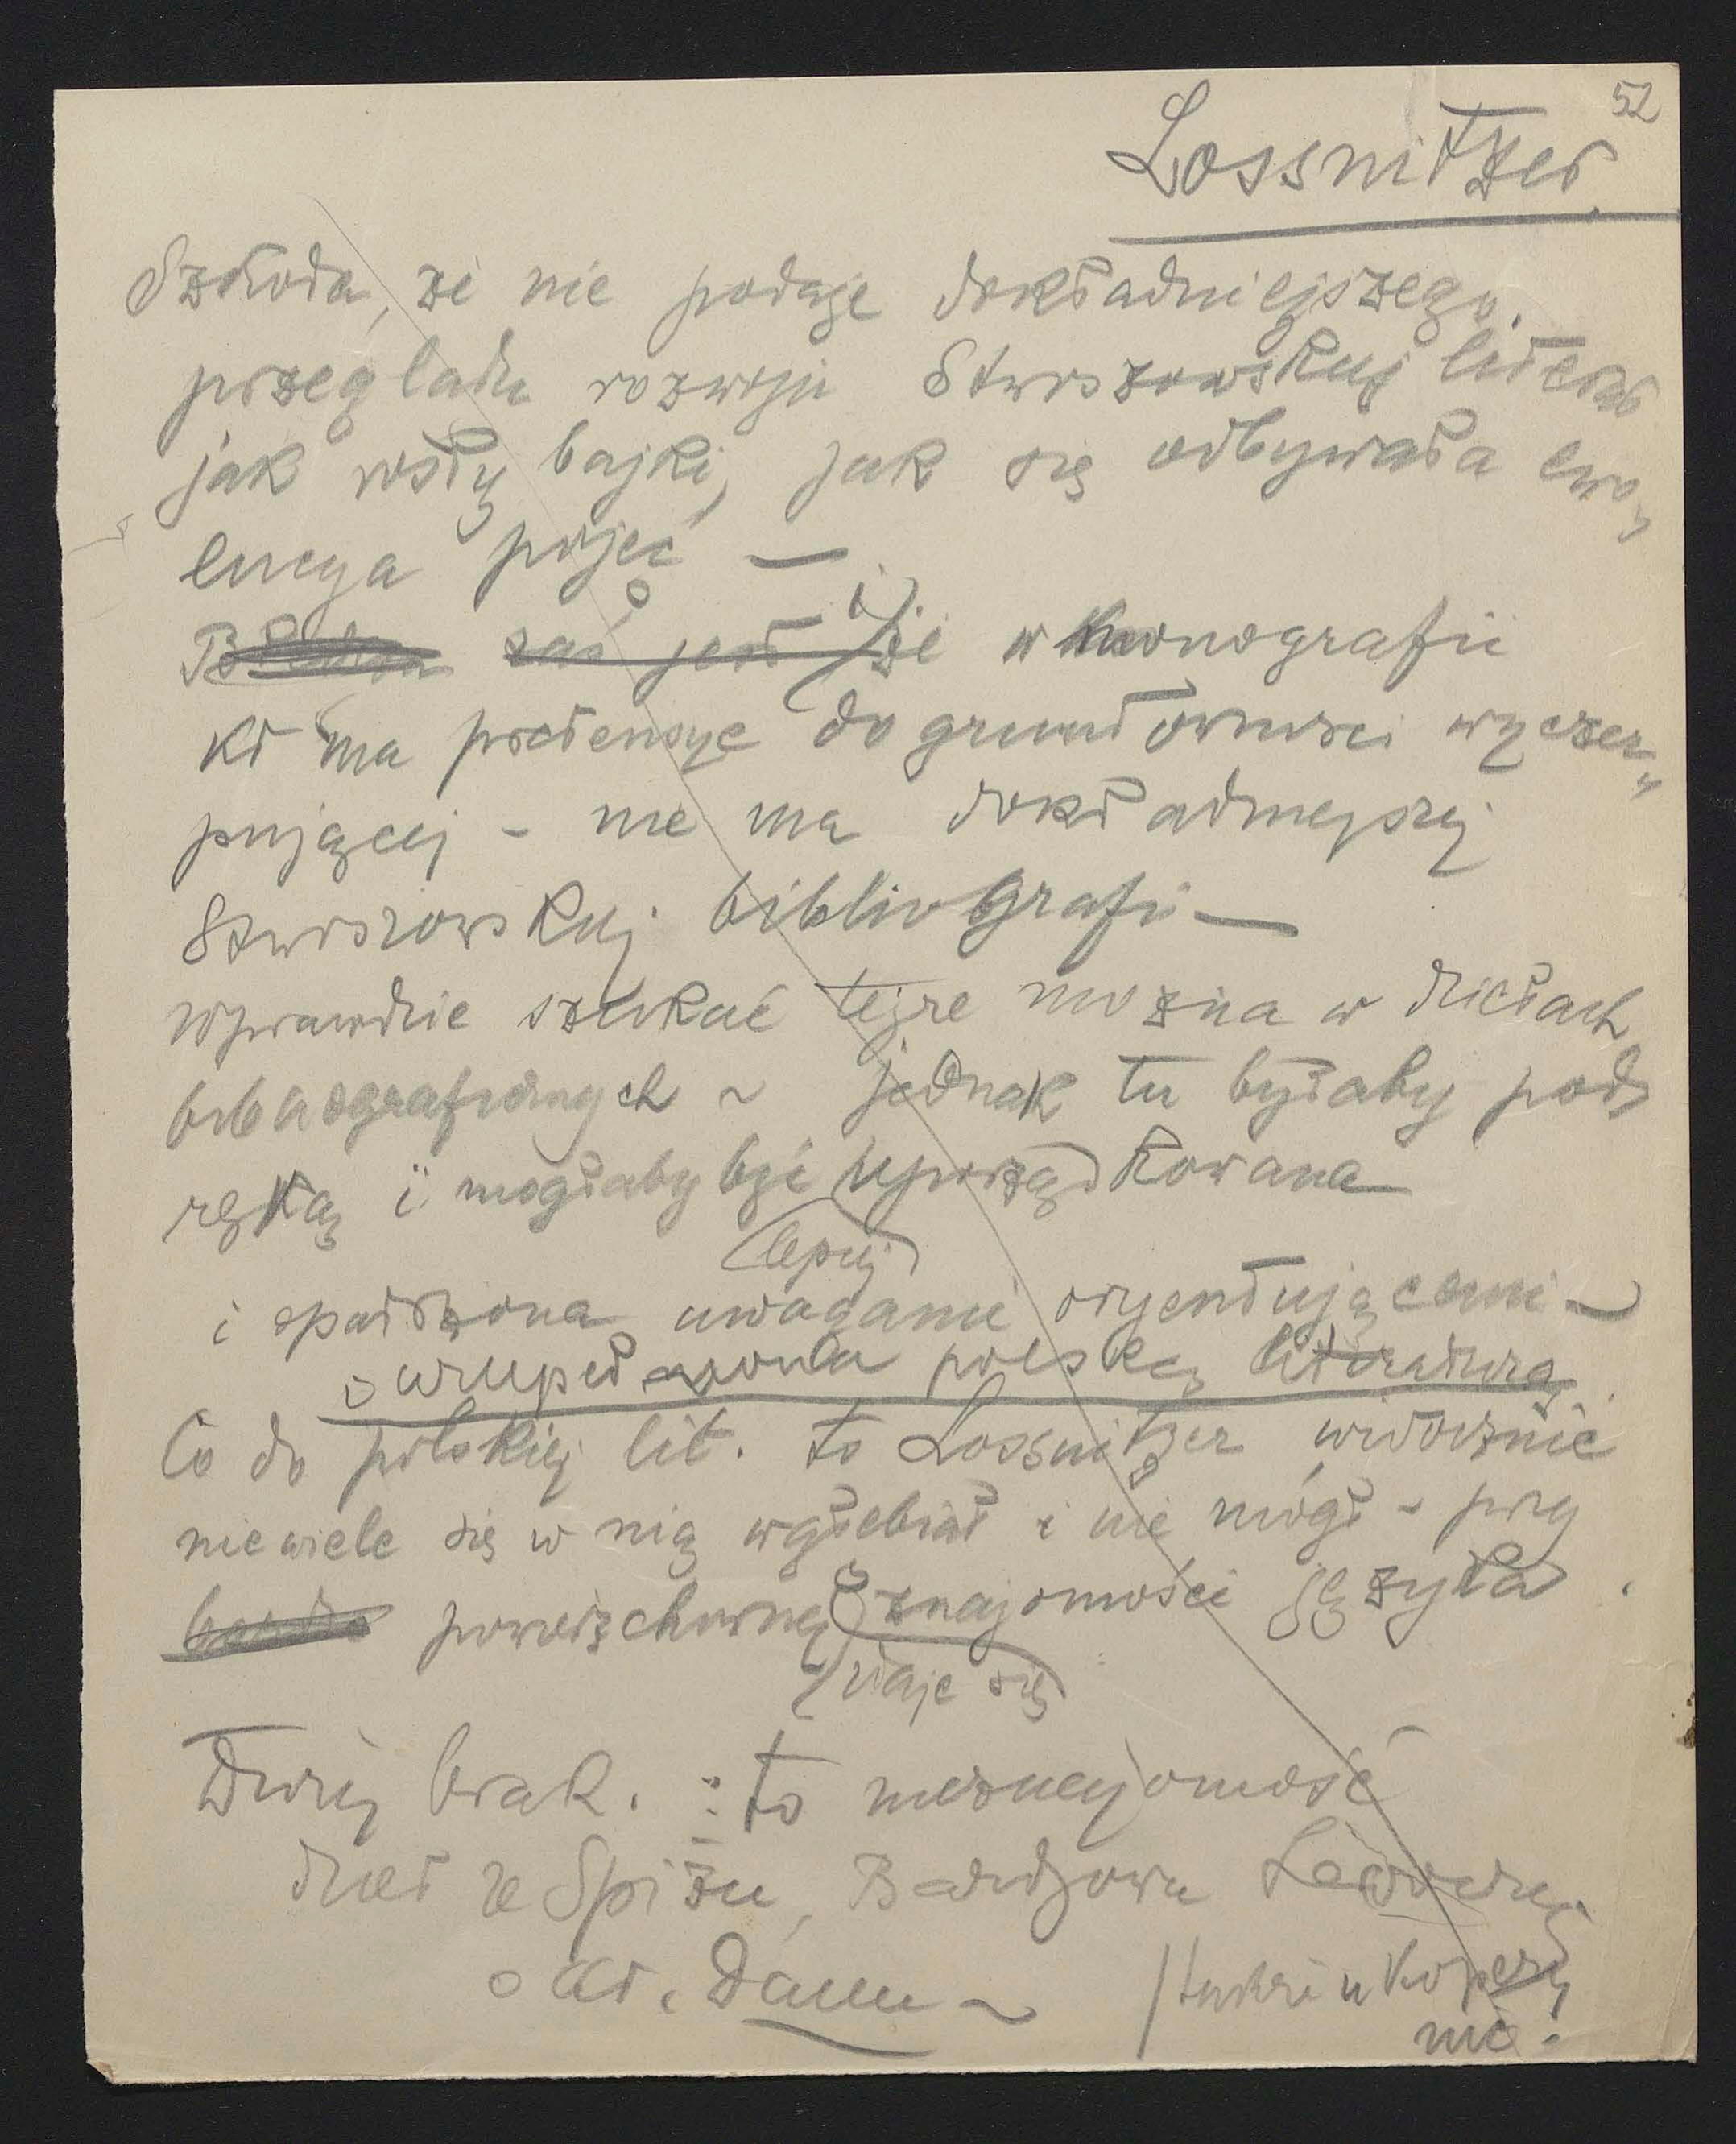 52
Lossnitzer
Szkoda, że nie podaje dokładniejszego
przeglądu rozwoju Stwoszowskiej literat
jak rosły bajki, jak się odbywała ewo-
lucya pojęć —
zaś jest i że w monografii
kt ma pretensye do gruntowności wyczer-
pującej - nie ma dokładniejszej
Stwoszowskiej bibliografii —
wprawdzie szukać tejże można w dziełach
bibliograficznych ~ jednak tu byłaby pod
ręką i mogłaby być uporządkowana
lepiej
i opatrzona uwagami oryentującemi —
i uzupełniona polską literaturą.
Co do polskiej lit. to Lossnitzer widocznie
niewiele się w nią wgłębiał i nie mógł - przy
powierzchownej znajomości języka.
zdaje się
Duży brak. : to nieznajomość
dzieł ze Spiżu, Bardyowa Lewoczy
o ołt.